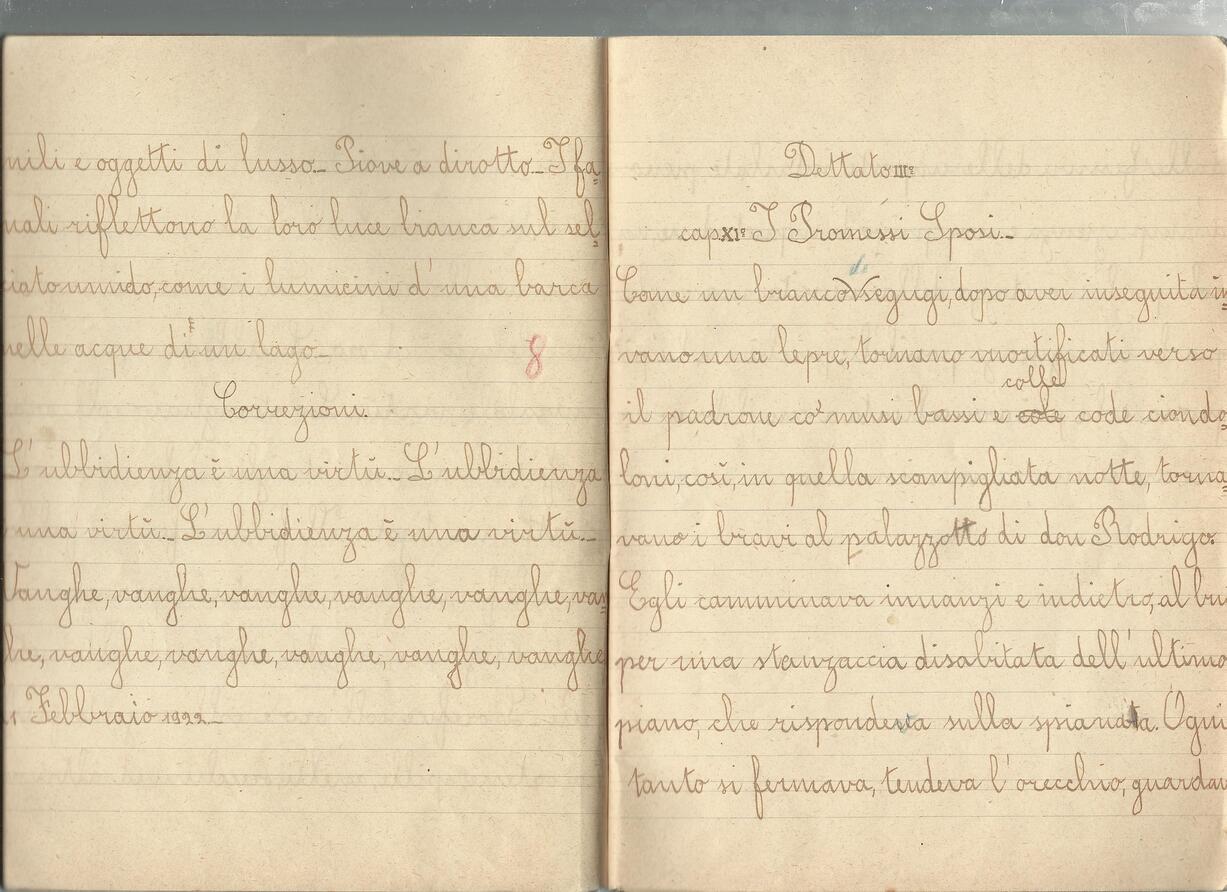 nili e oggetti di lusso_ Piove a dirotto_ I fa=
nali riflettono la loro luce bianca sul sel=
ciato umido, come i lumicini d'una barca
nelle acque di un lago_
8
Correzioni.
L'ubbidienza è una virtù_ L'ubbidienza
una virtù_ L'ubbidienza è una virtù_
Vanghe, vanghe, vanghe, vanghe, vanghe, van=
he, vanghe, vanghe, vanghe, vanghe, vanghe
1 Febbraio 1922_
Dettato III°
cap XI° I Promessi Sposi_
di
Come un branco V segugi, dopo aver inseguita in=
vano una lepre, tornano mortificati verso
colle
il padrone co' musi bassi e cole code ciondo=
loni, così, in quella scompigliata notte, torna=
vano i bravi al palazzotto di don Rodrigo.
Egli camminava innanzi e indietro, al bu
per una stanzaccia disabitata dell'ultimo
piano, che rispondeva sulla spianata. Ogni
tanto si fermava, tendeva l'orecchio, guardav